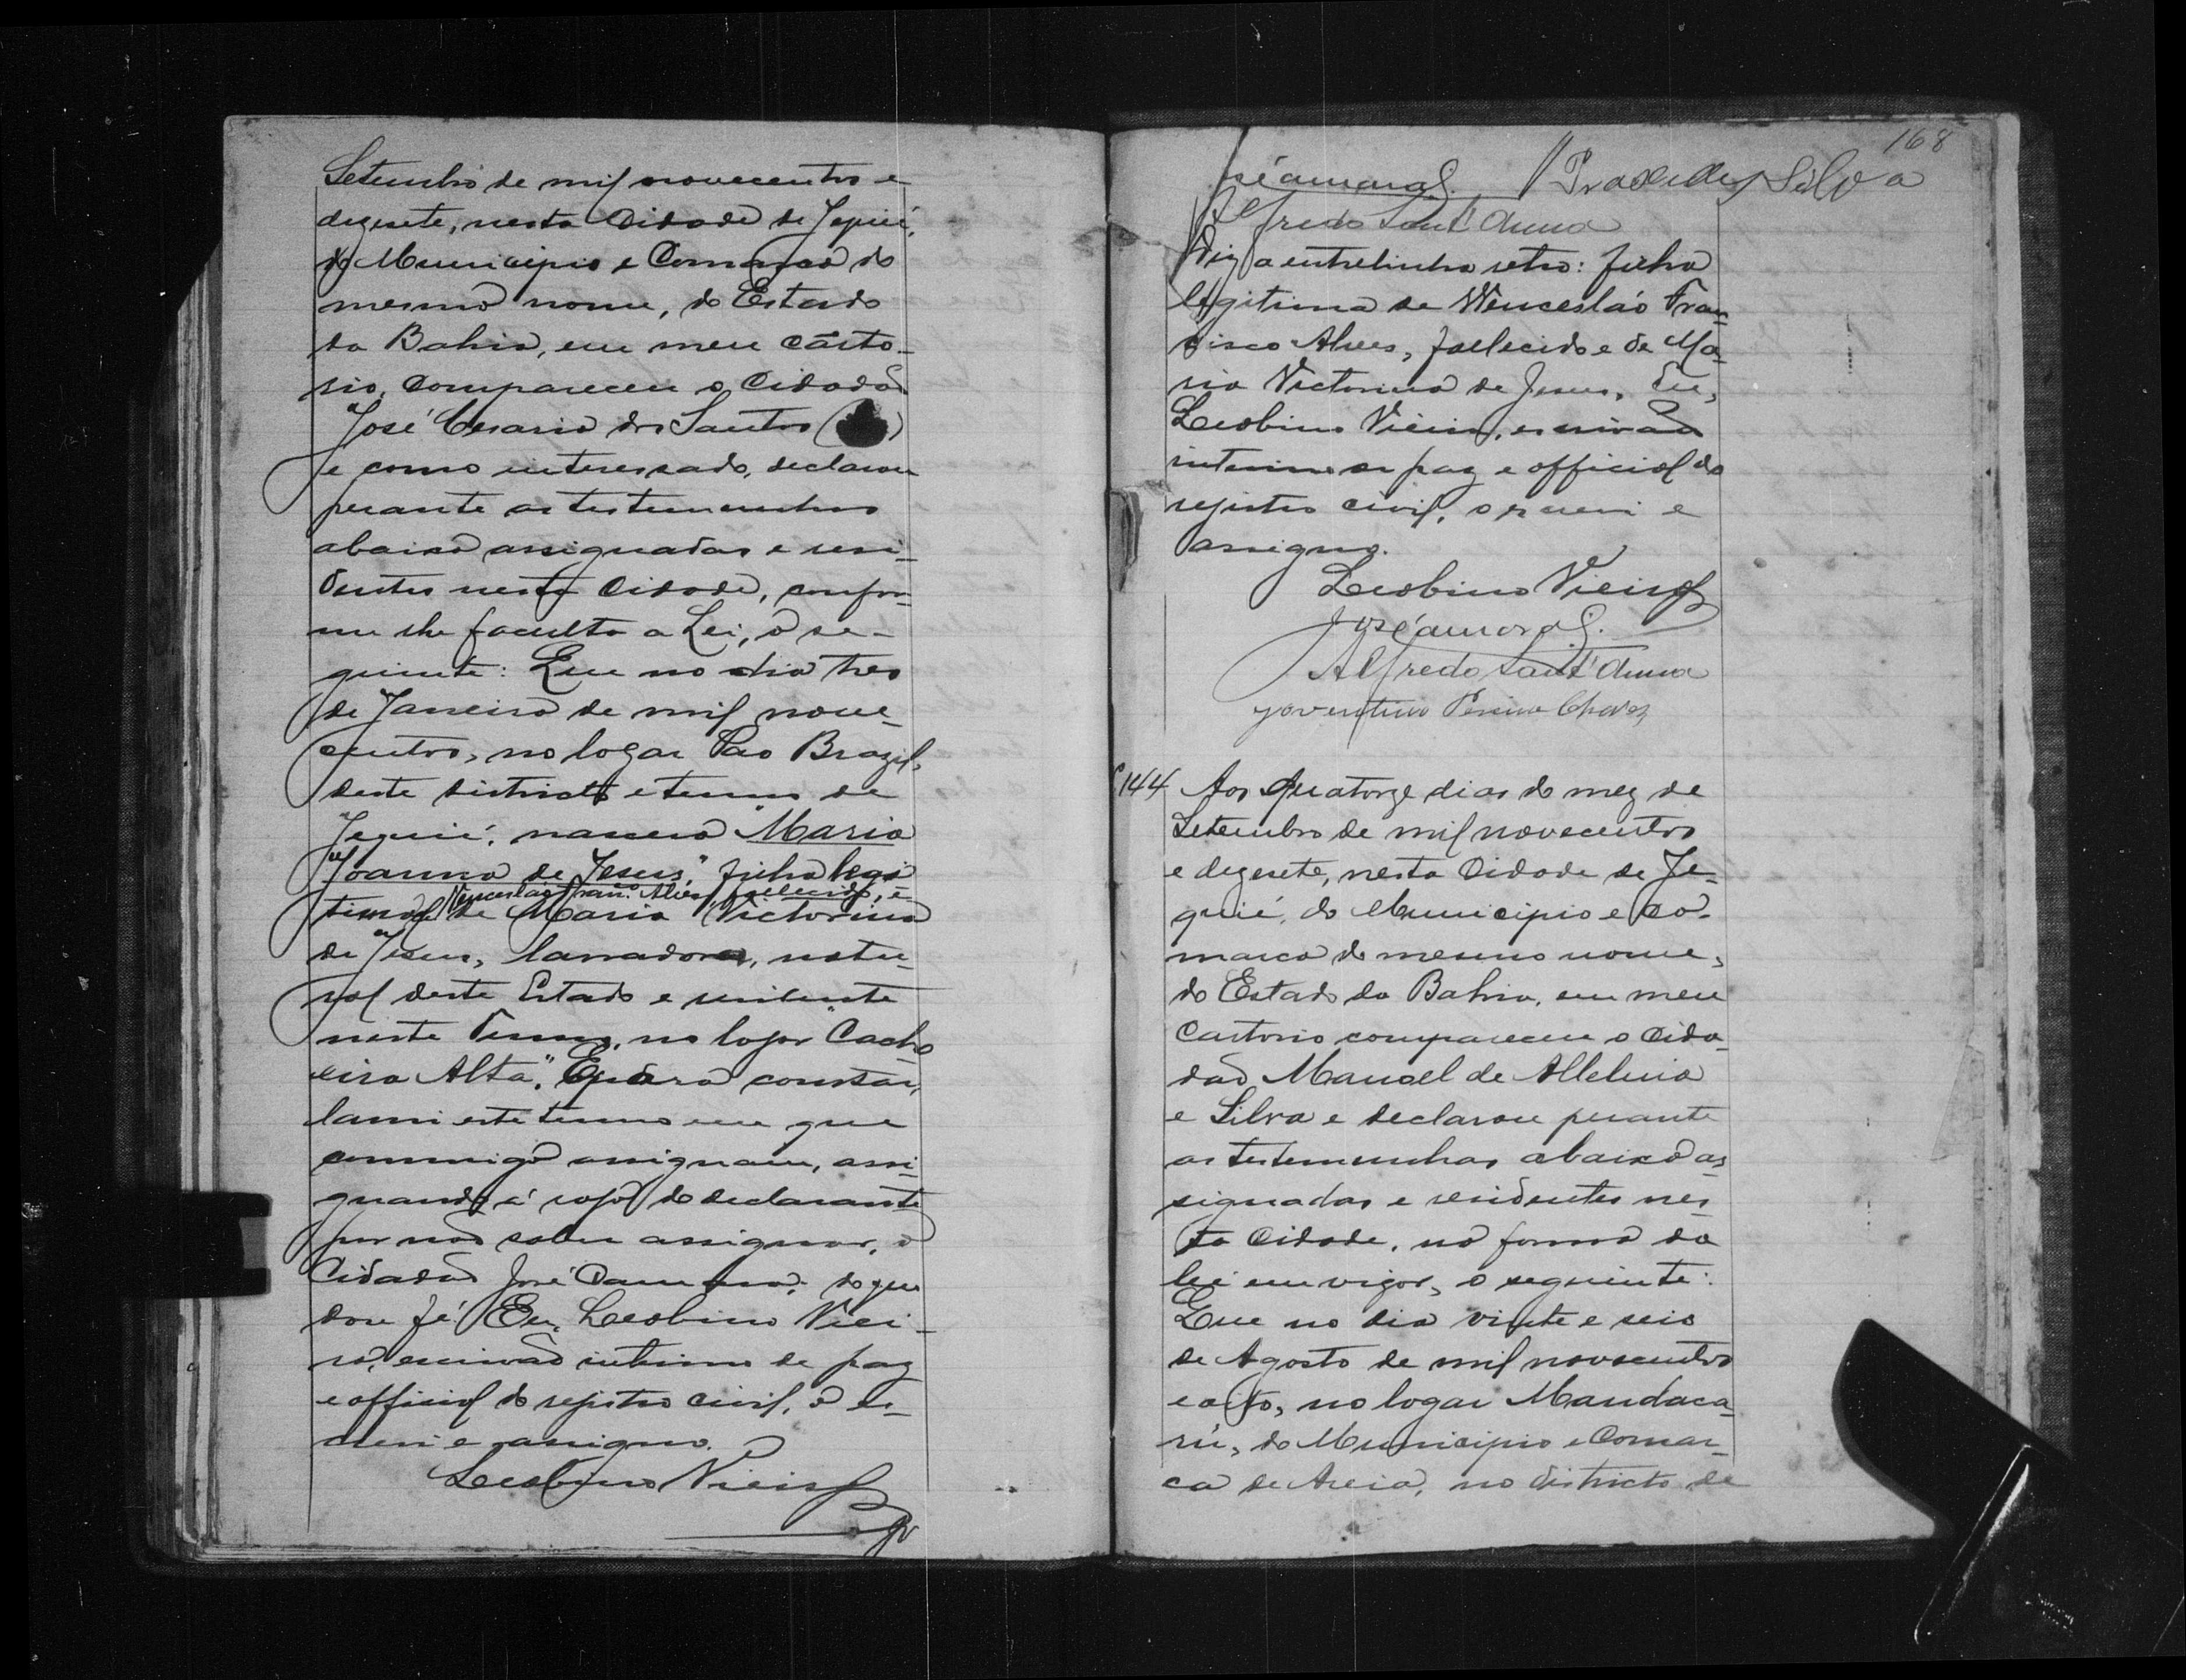 Setembro de mil novecentos e
dezesete, nesta Cidade de Jequié,
do Municipio e Comarca do
mesmo nome, do Estado
da Bahia, em meu carto-
rio, compareceu o Cidadão
José Cesario dos Santos
e como interessado, declarou
perante as testemunhas
abaixo assignadas e resi-
dentes nesta Cidade, confor-
me lhe faculta a Lei, o se-
guinte: Que no dia tres
de Janeiro de mil nove-
centos, no logar Pao Brazil,
deste districto e termo de
Jequié, nasceu Maria
"Joanna de Jesus," filha legi
Venceslão Franco. Alves fallecido, e
tima de Maria Victorina
de Jesus, lavradora, natu-
ral deste Estado e residente
neste Termo, no logar "Cacho
eira Alta". E para constar,
lavrei este termo em que
commigo assignam, assi-
gnando á rogo do declarante
por não saber assignar, o
Cidadão José do que
dou fé. Eu, Leobino Viei-
ra, escrivão interino de paz
e official do registro civil, o es-
crevi e assigno.
Leobino Vieira
168
José Amaral. Praxedes Silva
Alfredo Sant'Anna
Diz a entrelinha retro: filha
legitima de Wenceslão Fran-
cisco Alves, fallecido e de Ma-
ria Victorina de Jesus. Eu,
Leobino Vieira, escrivão
interino de paz e official do
registro civil, o escrevi e
assigno.
Leobino Vieira
José Amaral.
Alfredo Sant'Anna
Joventino Pereira Chaves
144 Aos quatorze dias do mez de
Setembro de mil novecentos
e dezesete, nesta Cidade de Je-
quié, do Municipio e Co-
marca do mesmo nome,
do Estado da Bahia, em meu
Cartorio compareceu o Cida-
dão Manoel de Alleluia
e Silva e declarou perante
as testemunhas abaixo as
signadas e residentes nes-
ta Cidade, na forma da
lei em vigor, o seguinte:
Que no dia vinte e seis
de Agosto de mil novecentos
e oito, no logar Mandaca-
rú, do Municipio e Comar-
ca de Areia, no districto de